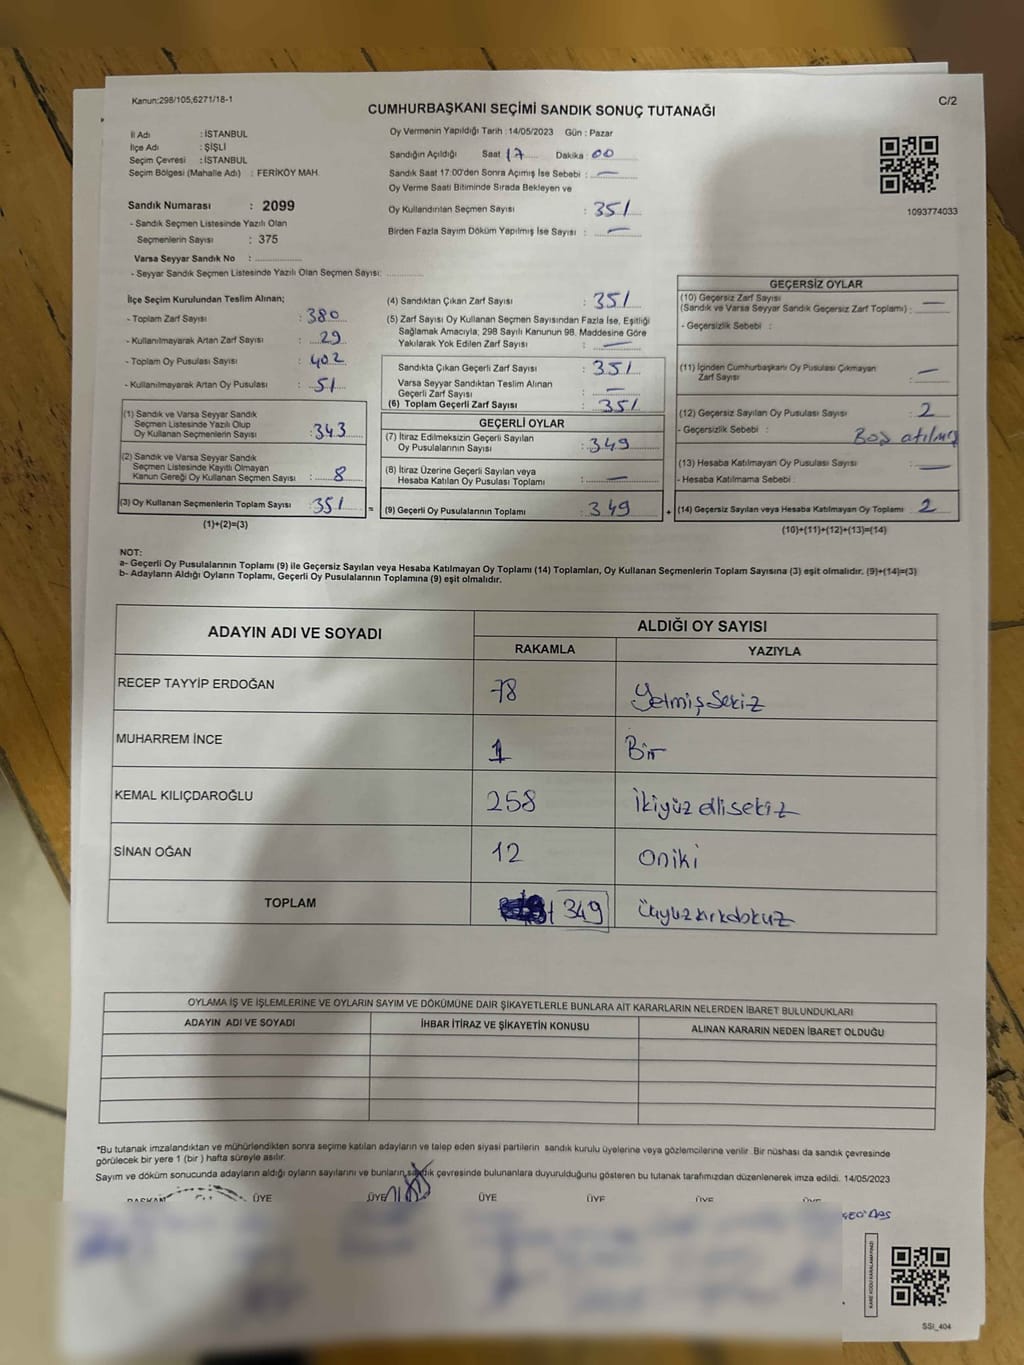 Kanun:298/105,6271/18-1
C/2
CUMHURBAŞKANI SEÇİMİ SANDIK SONUÇ TUTANAĞI
İl Adı : İSTANBUL
İlçe Adı : ŞİŞLİ
Seçim Çevresi : İSTANBUL
Seçim Bölgesi (Mahalle Adı) : FERİKÖY MAH.
Sandık Numarası : 2099
- Sandık Seçmen Listesinde Yazılı Olan
Seçmenlerin Sayısı : 375
Varsa Seyyar Sandık No :
- Seyyar Sandık Seçmen Listesinde Yazılı Olan Seçmen Sayısı:
Oy Vermenin Yapıldığı Tarih : 14/05/2023 Gün : Pazar
Sandığın Açıldığı Saat 17 Dakika : 00
Sandık Saat 17:00'den Sonra Açımış İse Sebebi : —
Oy Verme Saati Bitiminde Sırada Bekleyen ve
Oy Kullandırılan Seçmen Sayısı : 351
Birden Fazla Sayım Döküm Yapılmış İse Sayısı : —
1093774033
İlçe Seçim Kurulundan Teslim Alınan;
- Toplam Zarf Sayısı : 380
- Kullanılmayarak Artan Zarf Sayısı : 29
- Toplam Oy Pusulası Sayısı : 402
- Kullanılmayarak Artan Oy Pusulası : 51
(1) Sandık ve Varsa Seyyar Sandık
Seçmen Listesinde Yazılı Olup
Oy Kullanan Seçmenlerin Sayısı : 343
(2) Sandık ve Varsa Seyyar Sandık
Seçmen Listesinde Kayıtlı Olmayan
Kanun Gereği Oy Kullanan Seçmen Sayısı : 8
(3) Oy Kullanan Seçmenlerin Toplam Sayısı : 351
(1)+(2)=(3)
(4) Sandıktan Çıkan Zarf Sayısı : 351
(5) Zarf Sayısı Oy Kullanan Seçmen Sayısından Fazla İse, Eşitliği
Sağlamak Amacıyla; 298 Sayılı Kanunun 98. Maddesine Göre
Yakılarak Yok Edilen Zarf Sayısı : —
Sandıkta Çıkan Geçerli Zarf Sayısı : 351
Varsa Seyyar Sandıktan Teslim Alınan
Geçerli Zarf Sayısı : —
(6) Toplam Geçerli Zarf Sayısı : 351
GEÇERLİ OYLAR
(7) İtiraz Edilmeksizin Geçerli Sayılan
Oy Pusulalarının Sayısı : 349
(8) İtiraz Üzerine Geçerli Sayılan veya
Hesaba Katılan Oy Pusulası Toplamı : —
= (9) Geçerli Oy Pusulalarının Toplamı : 349
GEÇERSİZ OYLAR
(10) Geçersiz Zarf Sayısı
(Sandık ve Varsa Seyyar Sandık Geçersiz Zarf Toplamı) : —
- Geçersizlik Sebebi :
(11) İçinden Cumhurbaşkanı Oy Pusulası Çıkmayan
Zarf Sayısı : —
(12) Geçersiz Sayılan Oy Pusulası Sayısı : 2
- Geçersizlik Sebebi : Boş atılmış
(13) Hesaba Katılmayan Oy Pusulası Sayısı : —
- Hesaba Katılmama Sebebi :
+ (14) Geçersiz Sayılan veya Hesaba Katılmayan Oy Toplamı : 2
(10)+(11)+(12)+(13)=(14)
NOT:
a- Geçerli Oy Pusulalarının Toplamı (9) ile Geçersiz Sayılan veya Hesaba Katılmayan Oy Toplamı (14) Toplamları, Oy Kullanan Seçmenlerin Toplam Sayısına (3) eşit olmalıdır. (9)+(14)=(3)
b- Adayların Aldığı Oyların Toplamı, Geçerli Oy Pusulalarının Toplamına (9) eşit olmalıdır.
ADAYIN ADI VE SOYADI ALDIĞI OY SAYISI
RAKAMLA YAZIYLA
RECEP TAYYİP ERDOĞAN 78 Yetmiş Sekiz
MUHARREM İNCE 1 Bir
KEMAL KILIÇDAROĞLU 258 İkiyüz ellisekiz
SİNAN OĞAN 12 Oniki
TOPLAM 349 Üçyüzkırkdokuz
OYLAMA İŞ VE İŞLEMLERİNE VE OYLARIN SAYIM VE DÖKÜMÜNE DAİR ŞİKAYETLERLE BUNLARA AİT KARARLARIN NELERDEN İBARET BULUNDUKLARI
ADAYIN ADI VE SOYADI İHBAR İTİRAZ VE ŞİKAYETİN KONUSU ALINAN KARARIN NEDEN İBARET OLDUĞU
*Bu tutanak imzalandıktan ve mühürlendikten sonra seçime katılan adayların ve talep eden siyasi partilerin sandık kurulu üyelerine veya gözlemcilerine verilir. Bir nüshası da sandık çevresinde
görülecek bir yere 1 (bir ) hafta süreyle asılır.
Sayım ve döküm sonucunda adayların aldığı oyların sayılarını ve bunların sandık çevresinde bulunanlara duyurulduğunu gösteren bu tutanak tarafımızdan düzenlenerek imza edildi. 14/05/2023
BAŞKAN ÜYE ÜYE ÜYE ÜYE ÜYE ÜYE
SSİ_404